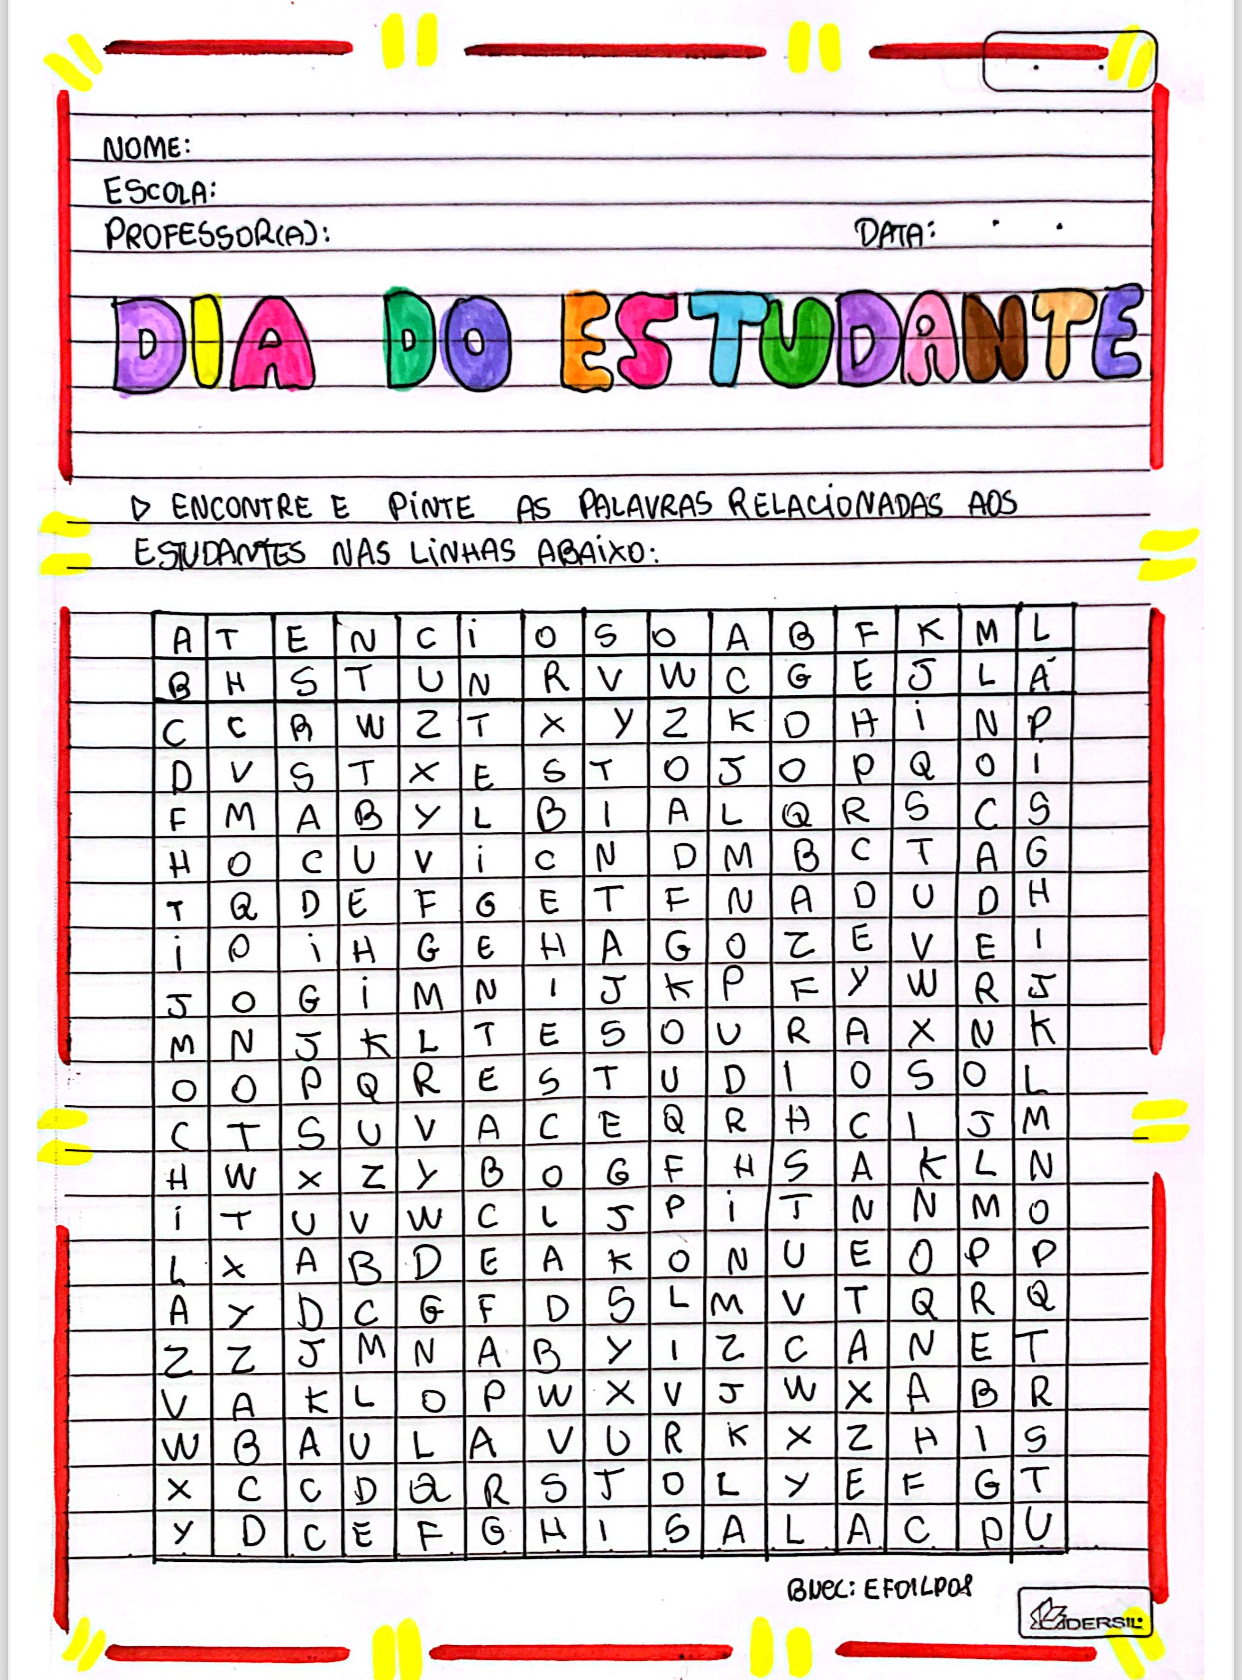 NOME:
ESCOLA:
PROFESSOR(A): DATA: . .
DIA DO ESTUDANTE
▷ ENCONTRE E PINTE AS PALAVRAS RELACIONADAS AOS
ESTUDANTES NAS LINHAS ABAIXO:
A T E N C I O S O A B F K M L
B H S T U N R V W C G E J L Á
C C R W Z T X Y Z K D H I N P
D V S T X E S T O J O P Q O I
F M A B Y L B I A L Q R S C S
H O C U V I C N D M B C T A G
T Q D E F G E T F N A D U D H
I P I H G E H A G O Z E V E I
J O G I M N I J K P F Y W R J
M N J K L T E S O U R A X N K
O O P Q R E S T U D I O S O L
C T S U V A C E Q R H C I J M
H W X Z Y B O G F H S A K L N
I T U V W C L J P I T N N M O
L X A B D E A K O N U E O P P
A Y D C G F D S L M V T Q R Q
Z Z J M N A B Y I Z C A N E T
V A K L O P W X V J W X A B R
W B A U L A V U R K X Z H I S
X C C D Q R S T O L Y E F G T
Y D C E F G H I S A L A C D U
BNCC: EF01LP08
EDERSIL